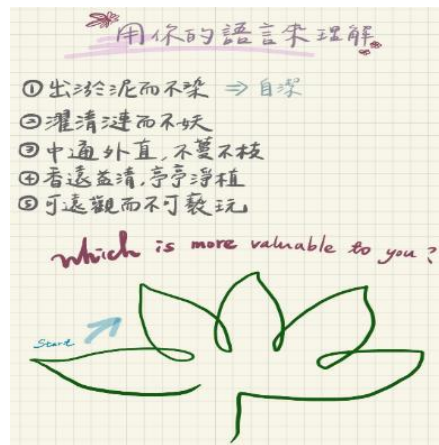 用你的語言來理解
①出淤泥而不染 ⇒ 自潔
②濯清漣而不妖
③中通外直,不蔓不枝
④香遠益清,亭亭淨植
⑤可遠觀而不可褻玩
which is more valuable to you?
Start